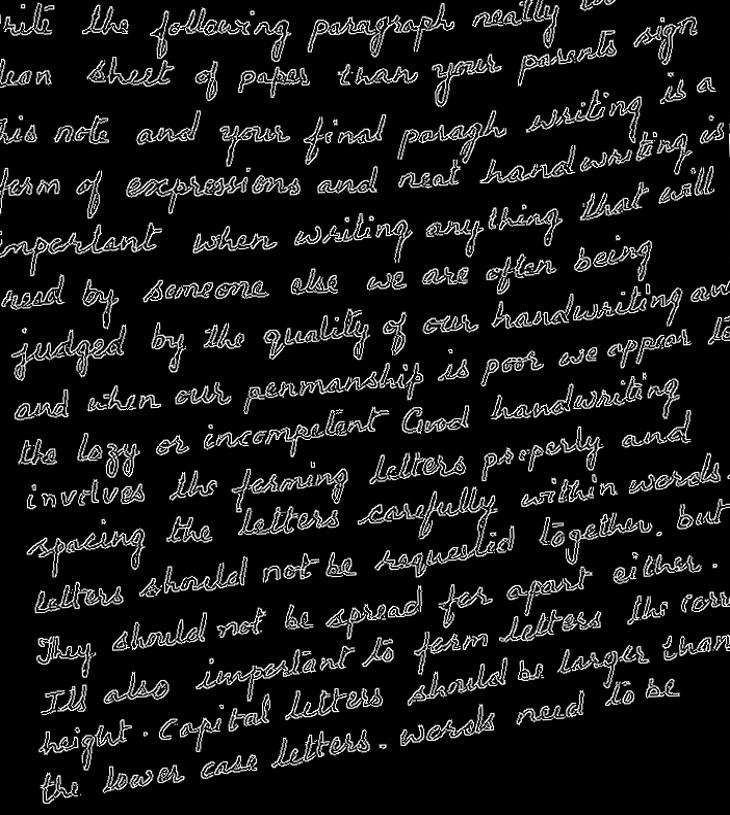 rite the following paragraph neatly
lean sheet of paper than your parents sign
his note and your final paragh writing is a
form of expressions and neat handwriting is
important when writing anything that will
read by someone else we are often being
judged by the quality of our handwriting an
and when our penmanship is poor we appear to
the lazy or incompetent Good handwriting
involves the forming letters properly and
spacing the letters carefully within words.
letters should not be requestid together. but
They should not be spread far apart either.
Its also important to form letters the corr
height. Capital letters should be larger than
the lower case letters. words need to be